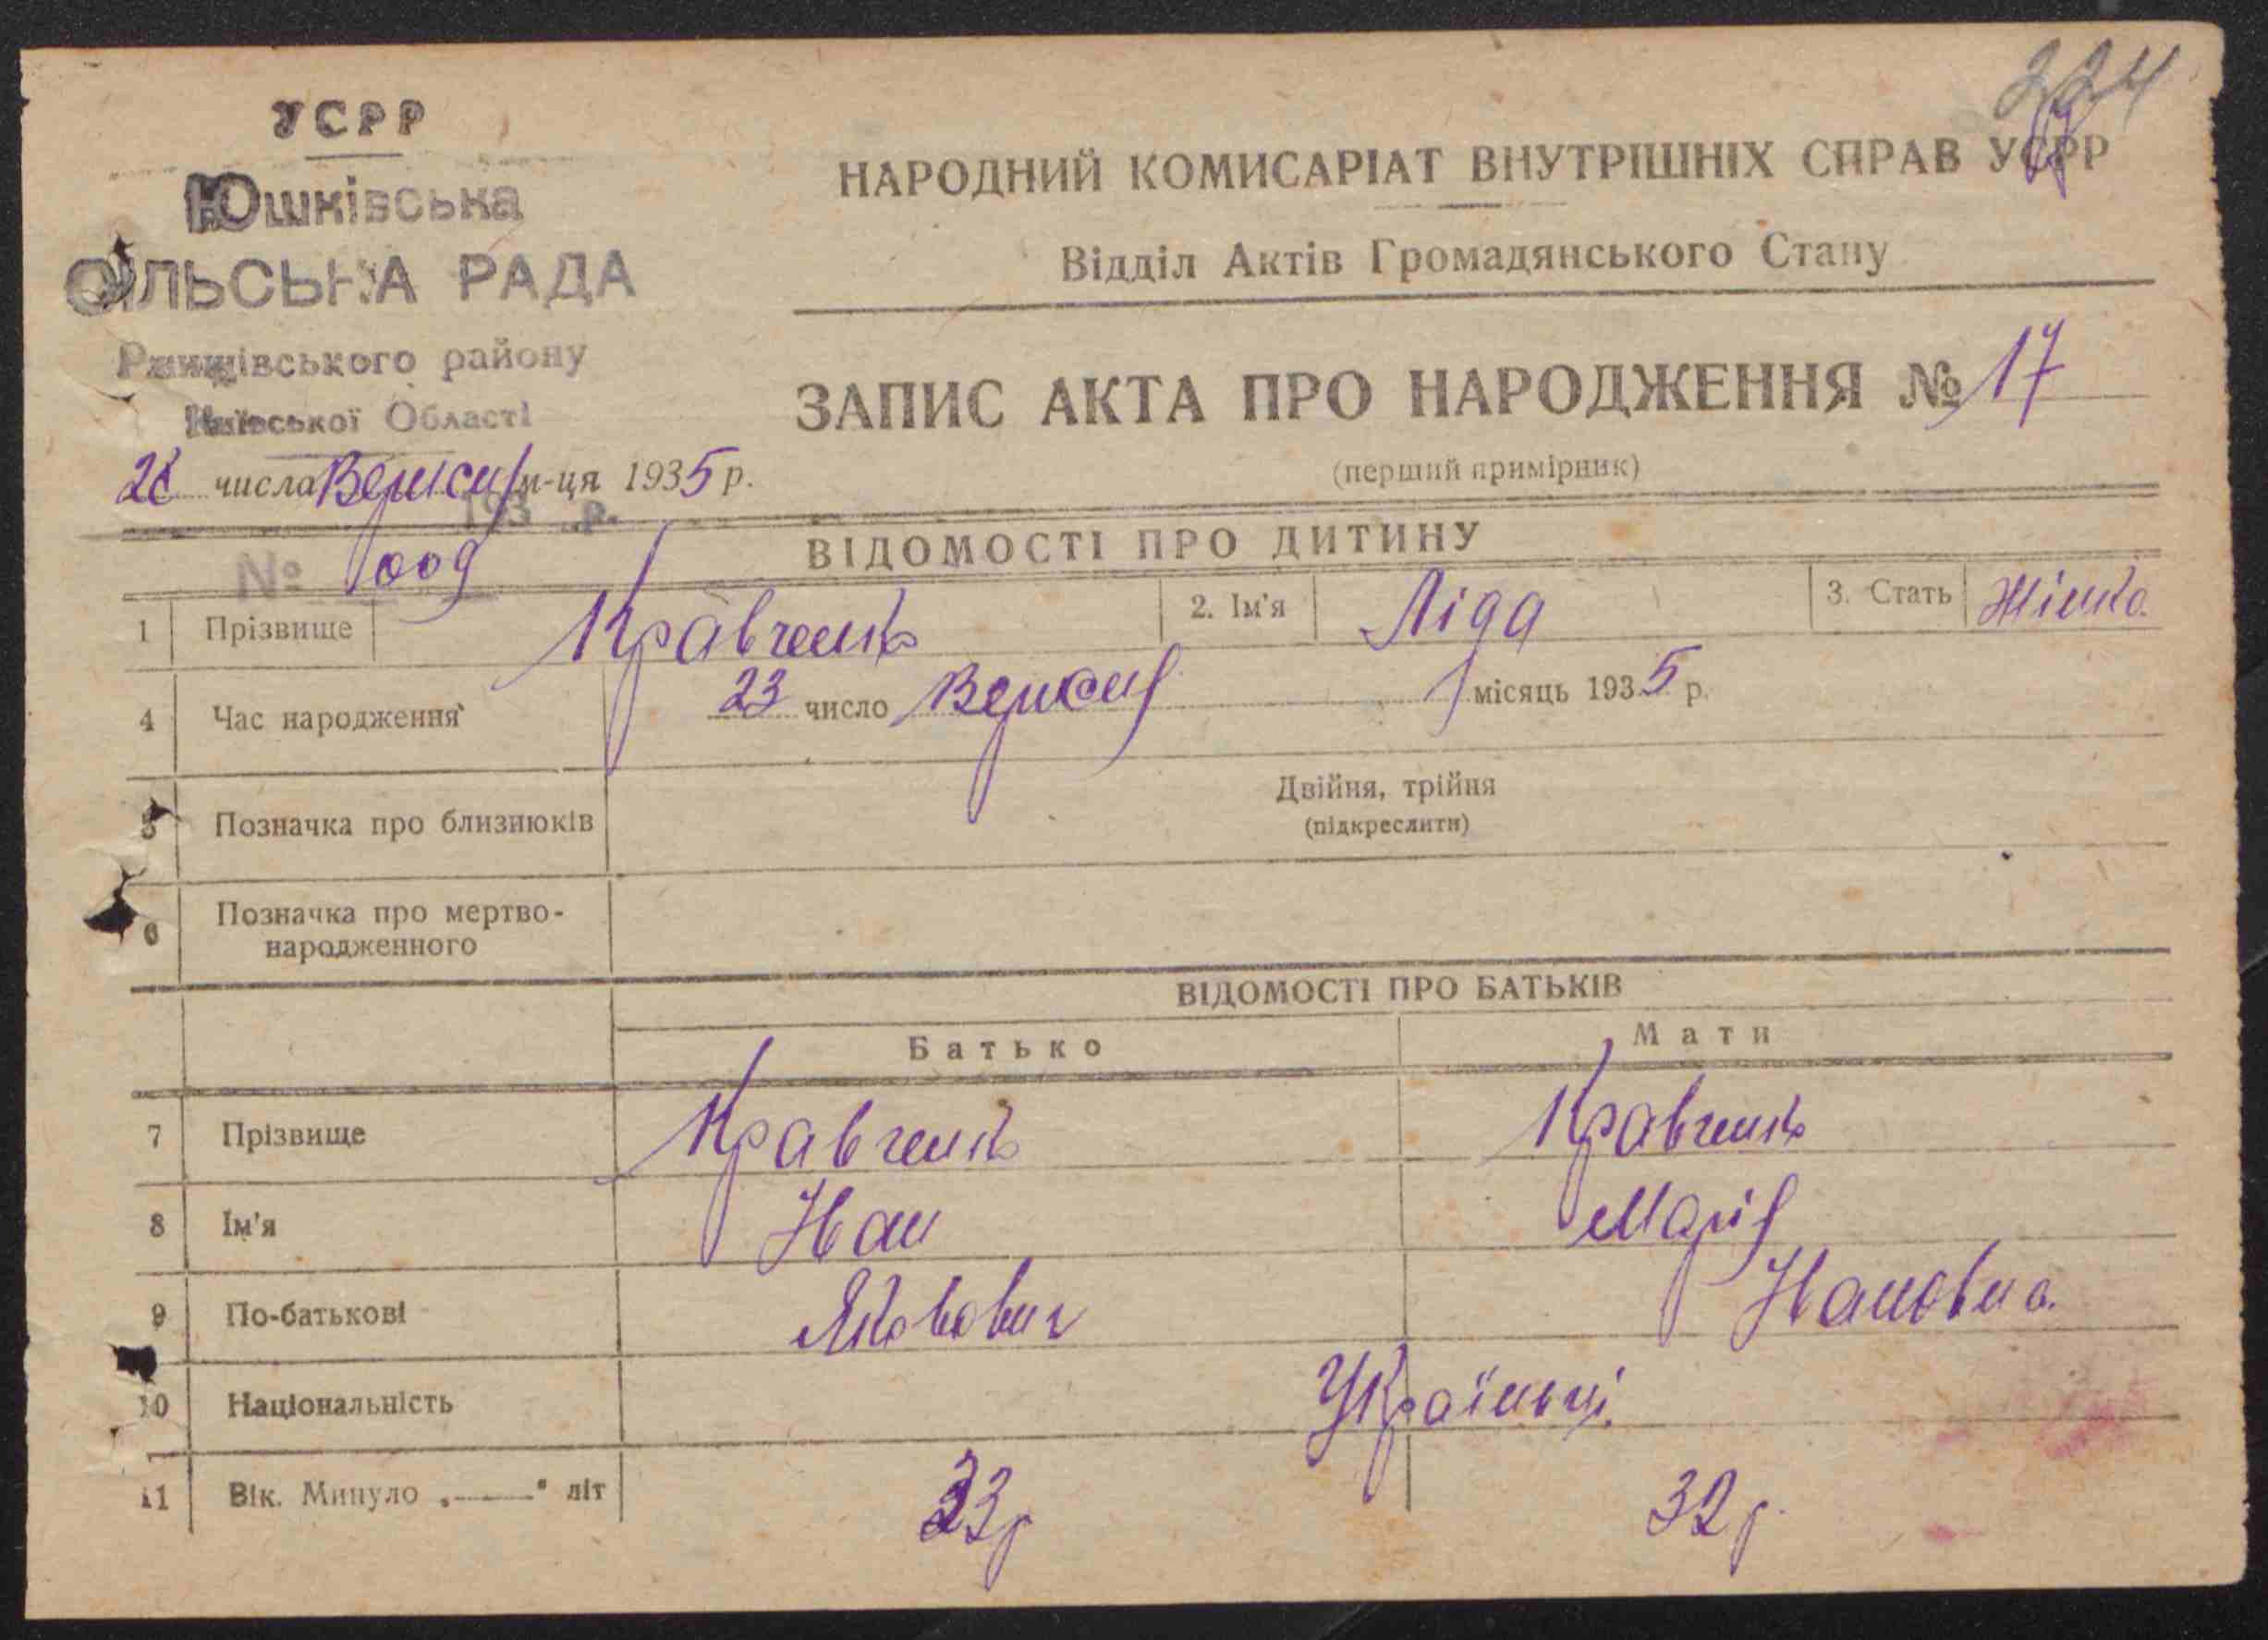 224
УСРР
Юшківська
СІЛЬСЬКА РАДА
Ржищівського району
Київської Області
числа м-ця 1935 р.
193 р.
№
НАРОДНИЙ КОМИСАРІАТ ВНУТРІШНІХ СПРАВ УСРР
Відділ Актів Громадянського Стану
ЗАПИС АКТА ПРО НАРОДЖЕННЯ № 17
(перший примірник)
ВІДОМОСТІ ПРО ДИТИНУ
1 Прізвище Кравченко 2. Ім'я Ліда 3. Стать
4 Час народження 23 число місяць 1935 р.
5 Позначка про близнюків Двійня, трійня
(підкреслити)
6 Позначка про мертво-
народженного
ВІДОМОСТІ ПРО БАТЬКІВ
Батько Мати
7 Прізвище Кравченко Кравченко
8 Ім'я Іван Марія
9 По-батькові Якович Івановна
10 Національність Українці
11 Вік. Минуло „ — “ літ 33 р 32 р.